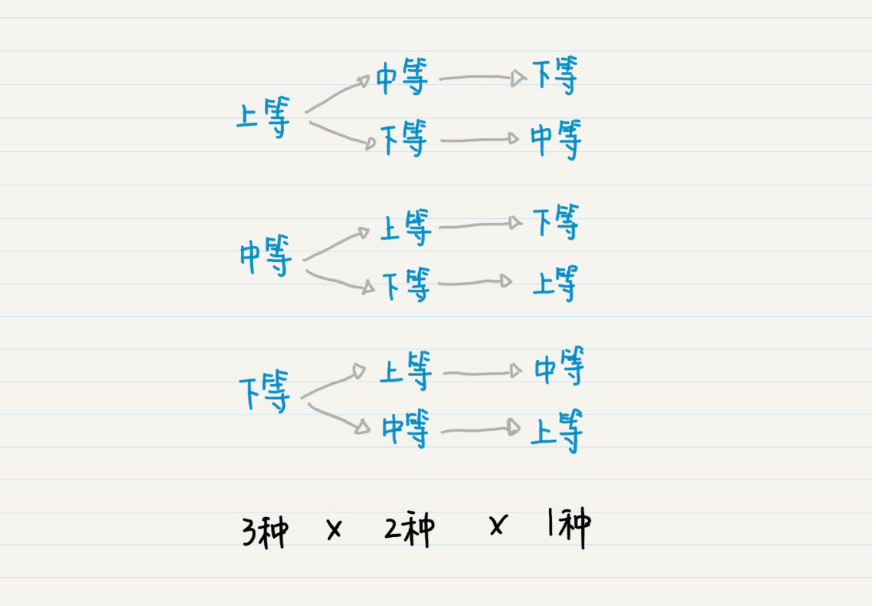 中等 下等
上等
下等 中等
上等 下等
中等
下等 上等
上等 中等
下等
中等 上等
3种 x 2种 x 1种